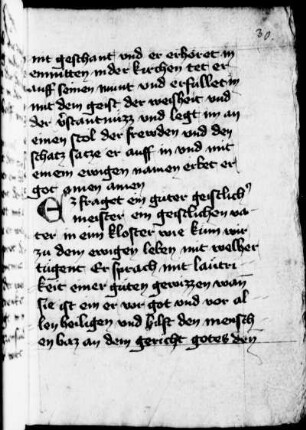 30
nit geschant vnd er erhöret in
enmitten in der kirchen tet er
auff seinen munt vnd erfullet in
mit dem geist der weisheit vnd
der v̄stantnuzz vnd legt im an
einen stol der frewden vnd den
schatz satze er auff in vnd mit
einem ewigen namen erbet er
got amen amen
Ez fraget ein guter geistlich
meister ein geistlichen va
ter in ein kloster wie kum wir
zu dem ewigen leben mit welher
tugent Er sprach mit lautri
keit einer guten gewizzen wan
sie ist ein er vor got vnd vor al
len heiligen vnd hilft den mensch
en baz an dem gericht gotes den